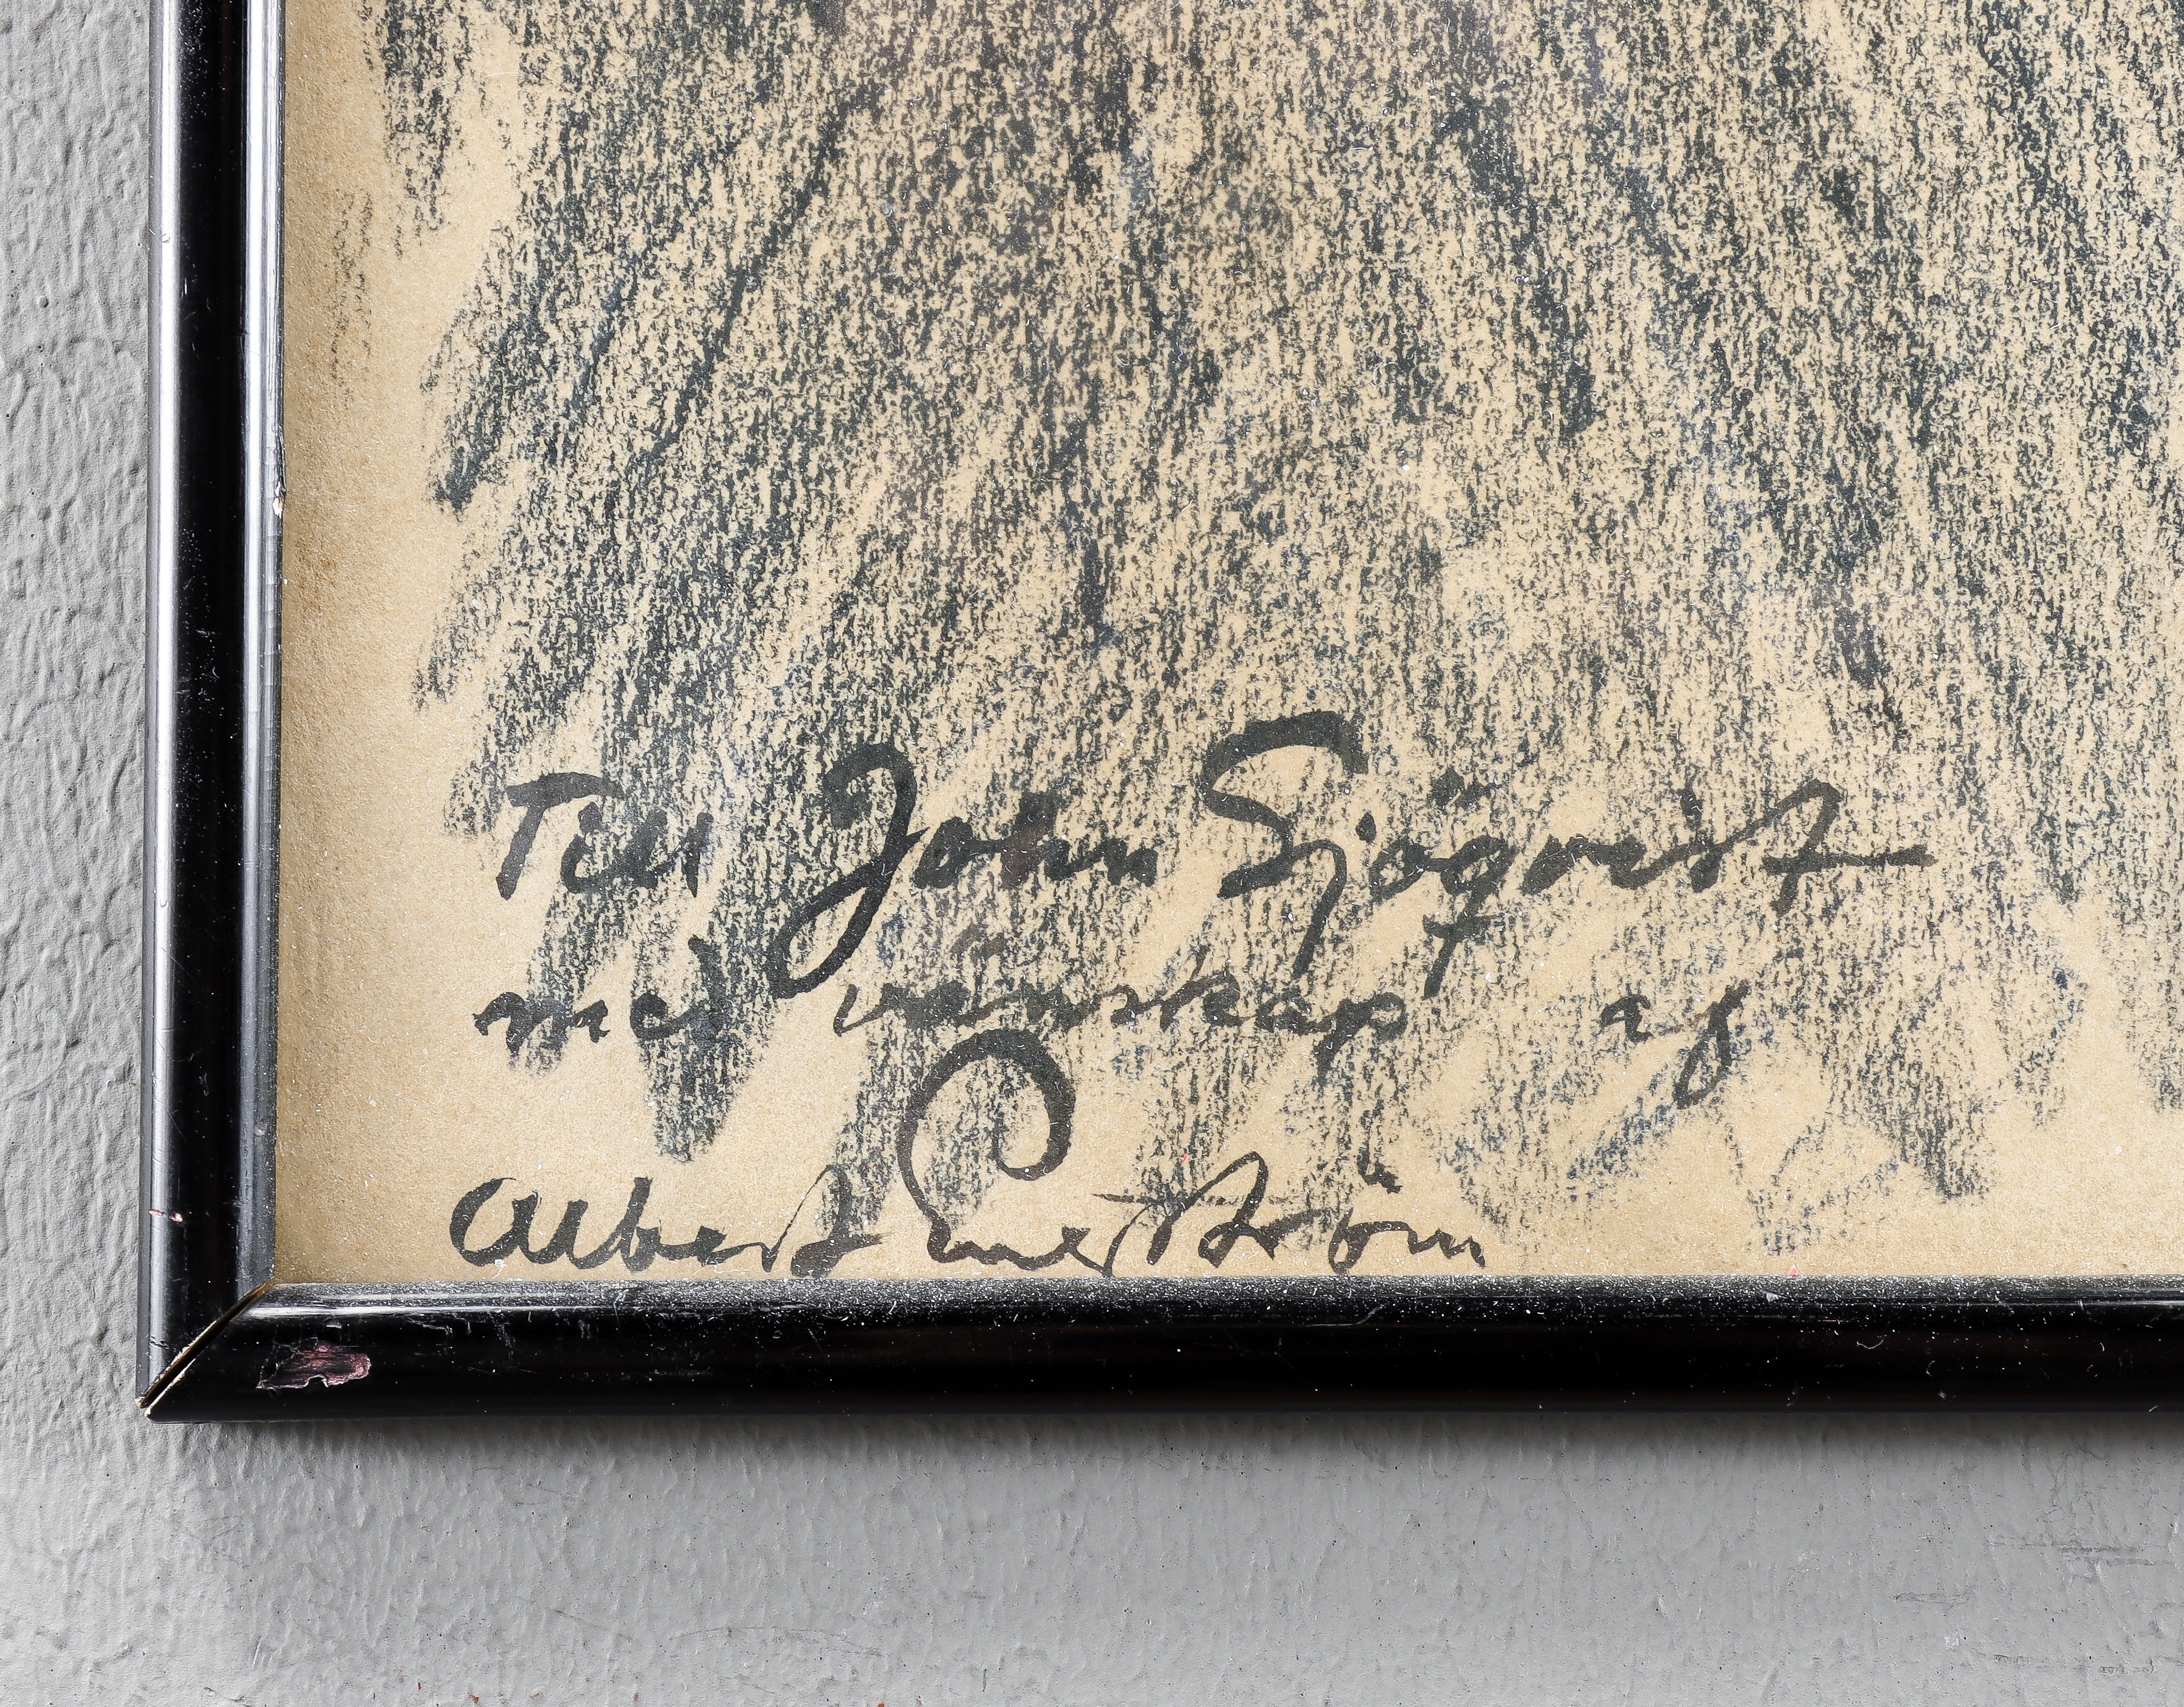 Till John Sjöqvist
med vänskap af
Albert Engström